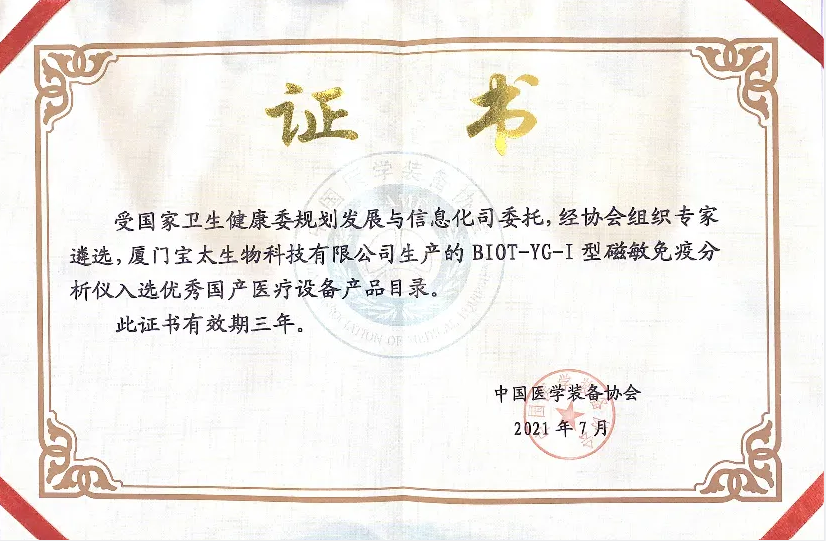 证 书
受国家卫生健康委规划发展与信息化司委托,经协会组织专家
遴选,厦门宝太生物科技有限公司生产的 BIOT-YG-I 型磁敏免疫分
析仪入选优秀国产医疗设备产品目录。
此证书有效期三年。
中国医学装备协会
2021 年 7 月